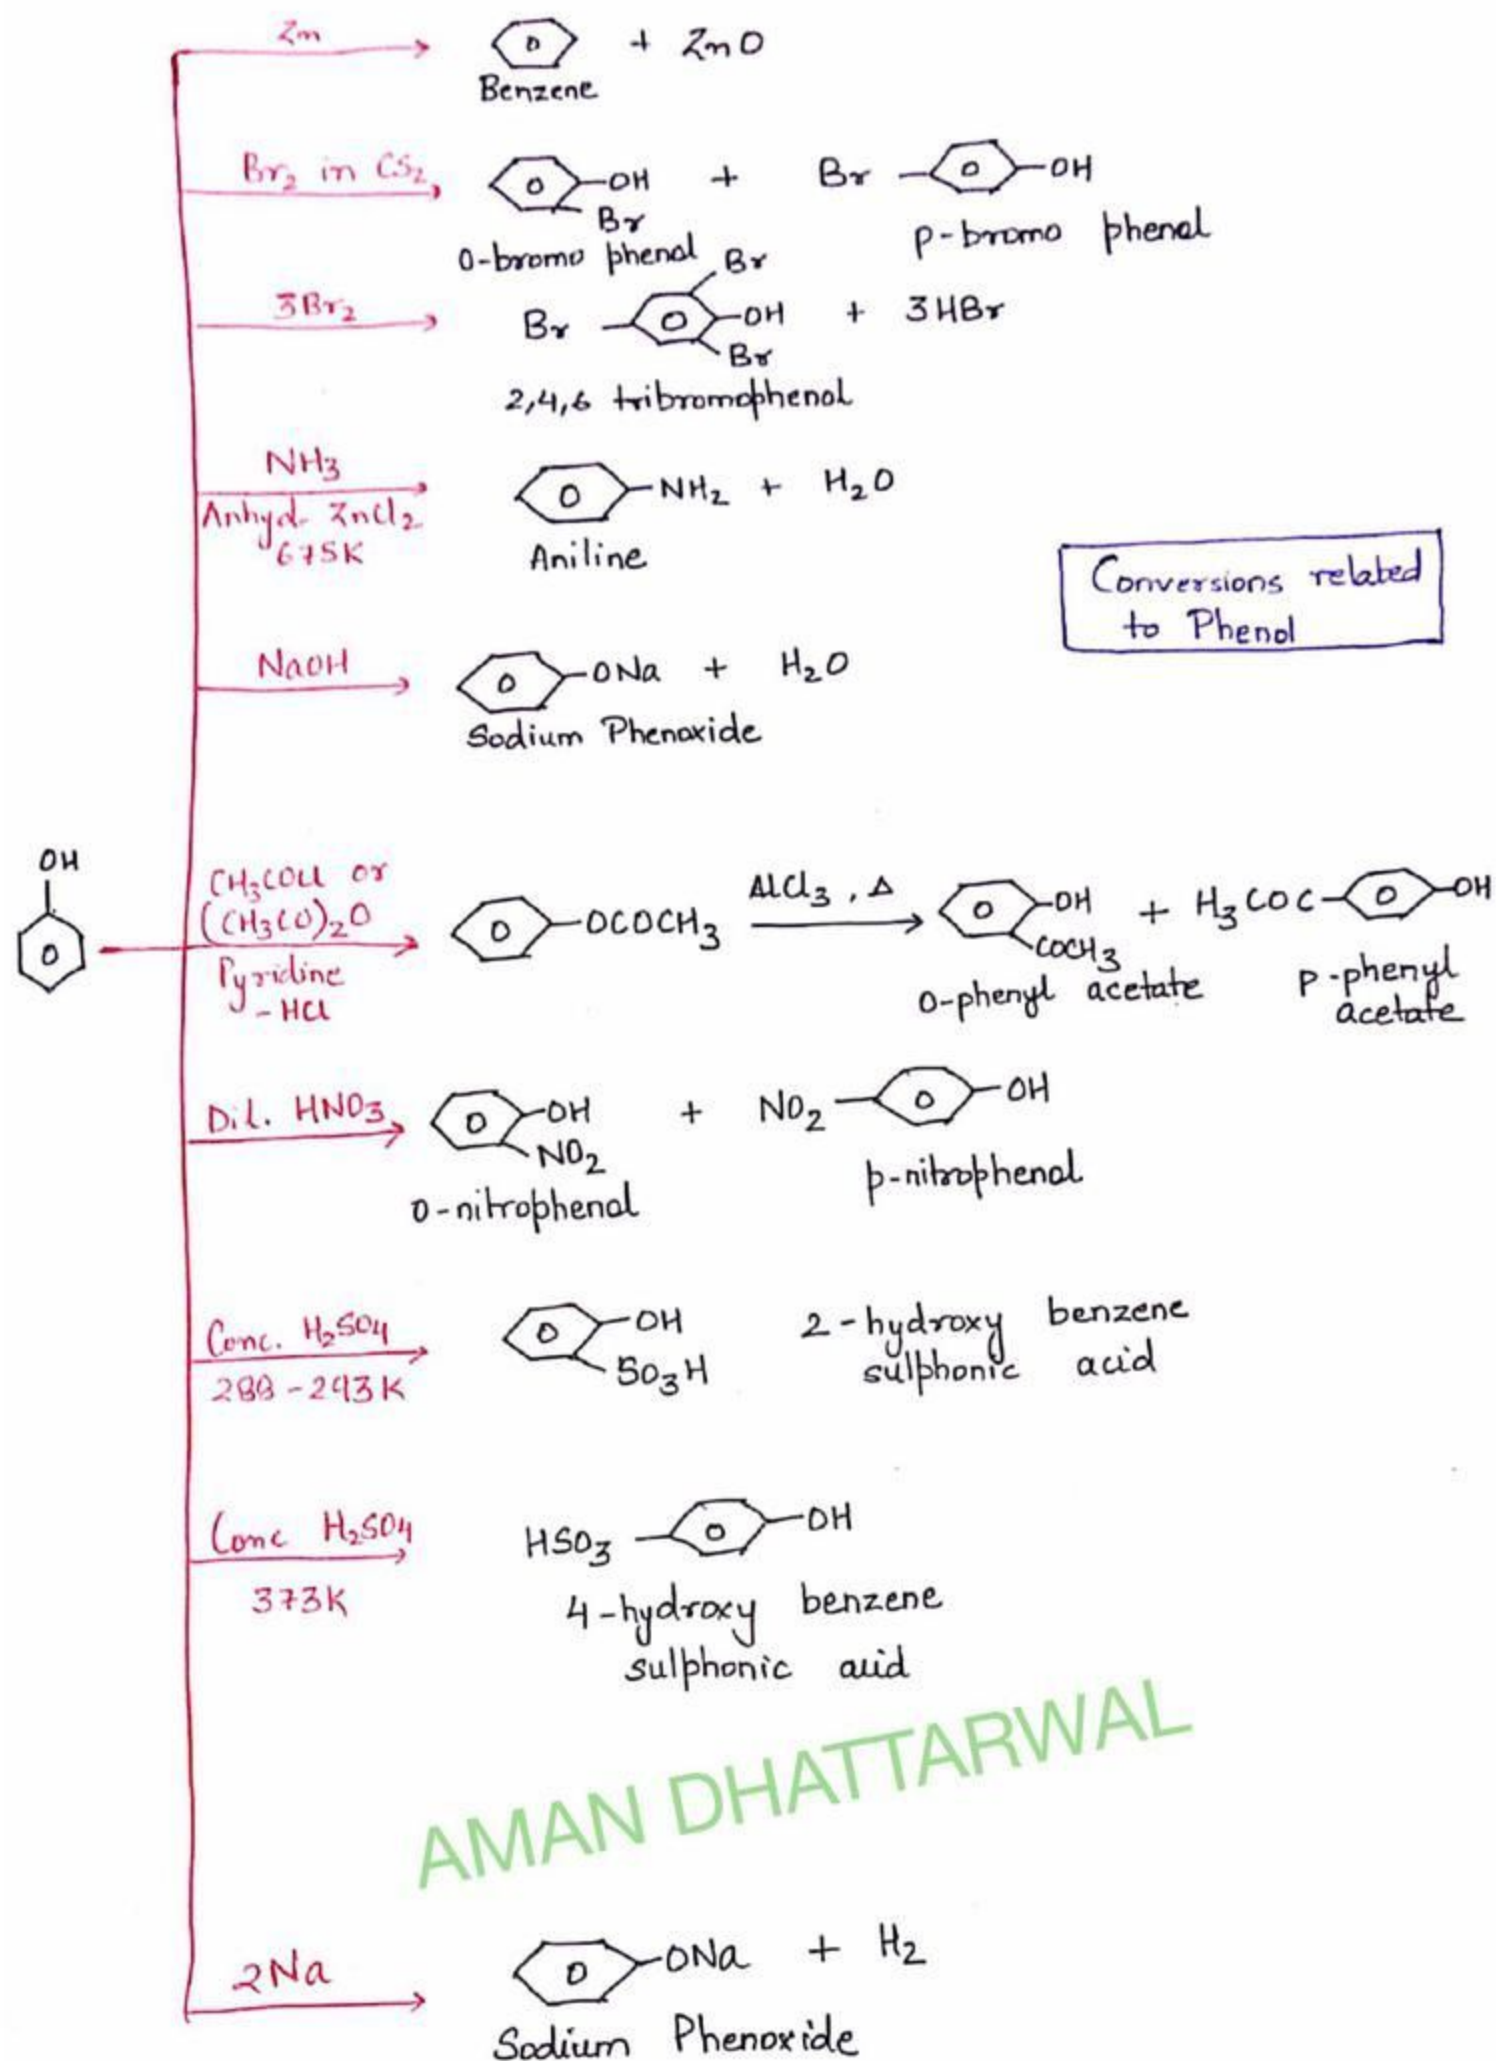 Zn
+ ZnO
Benzene
Br₂ in CS₂
OH + Br OH
Br
o-bromo phenol
p-bromo phenol
3Br₂
Br
Br OH + 3HBr
Br
2,4,6 tribromophenol
NH₃
Anhyd. ZnCl₂
675K
NH₂ + H₂O
Aniline
Conversions related
to Phenol
NaOH
ONa + H₂O
Sodium Phenoxide
OH
CH₃COCl or
(CH₃CO)₂O
Pyridine
- HCl
OCOCH₃
AlCl₃, Δ
OH + H₃COC OH
COCH₃
o-phenyl acetate
p-phenyl
acetate
Dil. HNO₃
OH + NO₂ OH
NO₂
o-nitrophenol
p-nitrophenol
Conc. H₂SO₄
288-293K
OH
SO₃H
2-hydroxy benzene
sulphonic acid
Conc H₂SO₄
373K
HSO₃ OH
4-hydroxy benzene
sulphonic acid
AMAN DHATTARWAL
2Na
ONa + H₂
Sodium Phenoxide